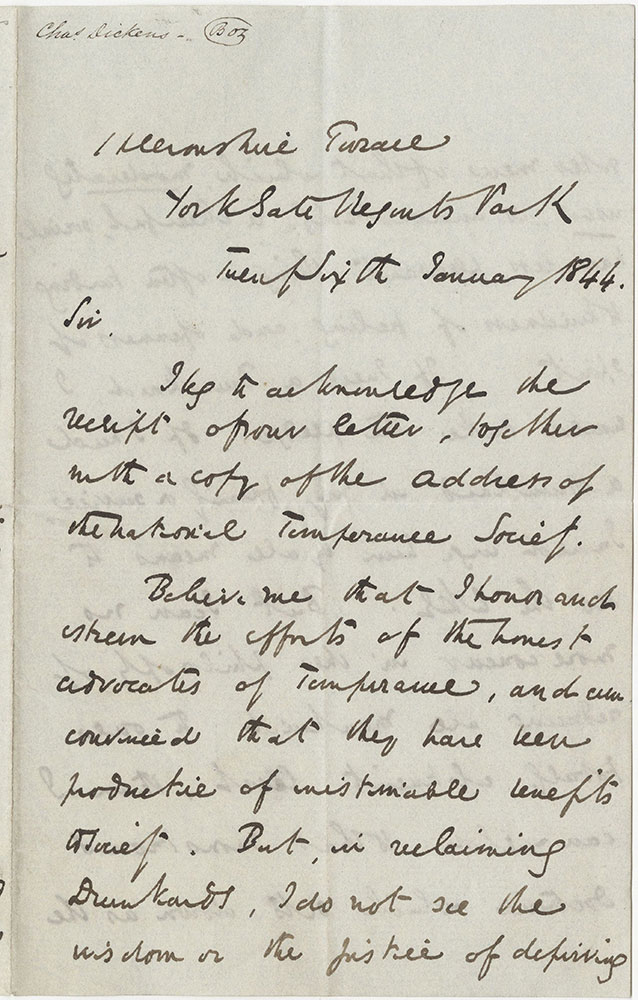 Chas Dickens – Boz
1 Devonshire Terrace
York Gate Regents Park
Twenty Sixth January 1844.
Sir.
I beg to acknowledge the
receipt of your letter, together
with a copy of the address of
the National Temperance Society.
Believe me that I honor and
esteem the efforts of the honest
advocates of Temperance, and am
convinced that they have been
productive of inestimable benefits
to Society. But, in reclaiming
Drunkards, I do not see the
wisdom or the justice of depriving